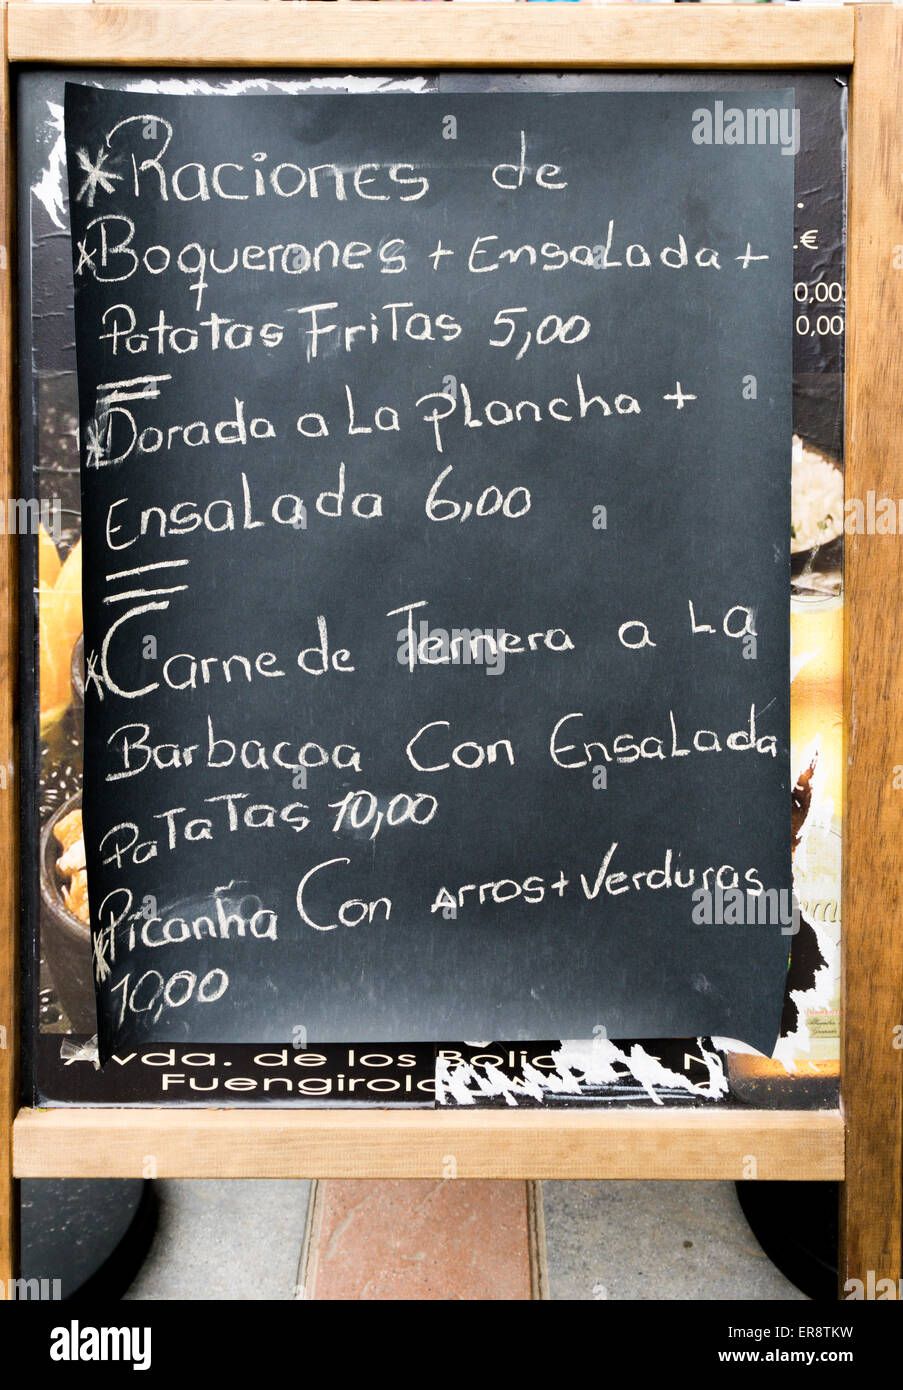 *Raciones de
*Boquerones + Ensalada +
Patatas Fritas 5,00
*Dorada a La Plancha +
Ensalada 6,00
*Carne de Ternera a La
Barbaçoa Con Ensalada
Patatas 10,00
*Picanha Con Arros + Verduras
10,00
€
0,00
0,00
Avda. de los
Fuengirola
alamy
a
alamy
Image ID: ER8TKW
www.alamy.com